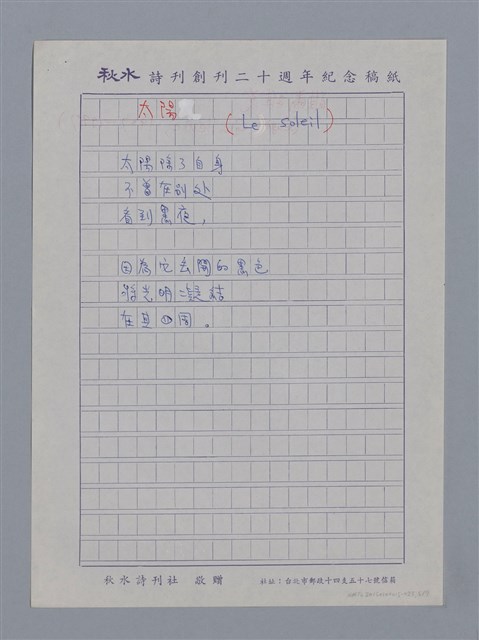 秋水 詩刊創刊二十週年紀念稿紙
太陽
(Le soleil)
太陽除了自身
不曾在別处
看到黑夜，
因為它玄闇的黑色
將光明凝結
在其四周。
秋水詩刊社 敬贈
社址：台北市郵政十四支五十七號信箱